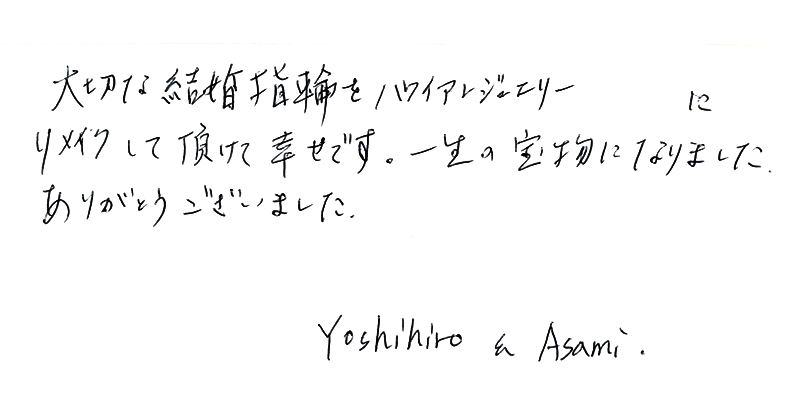 大切な結婚指輪をハワイアンジュエリー に
リメイクして頂けて幸せです。一生の宝物になりました.
ありがとうございました.
Yoshihiro & Asami.